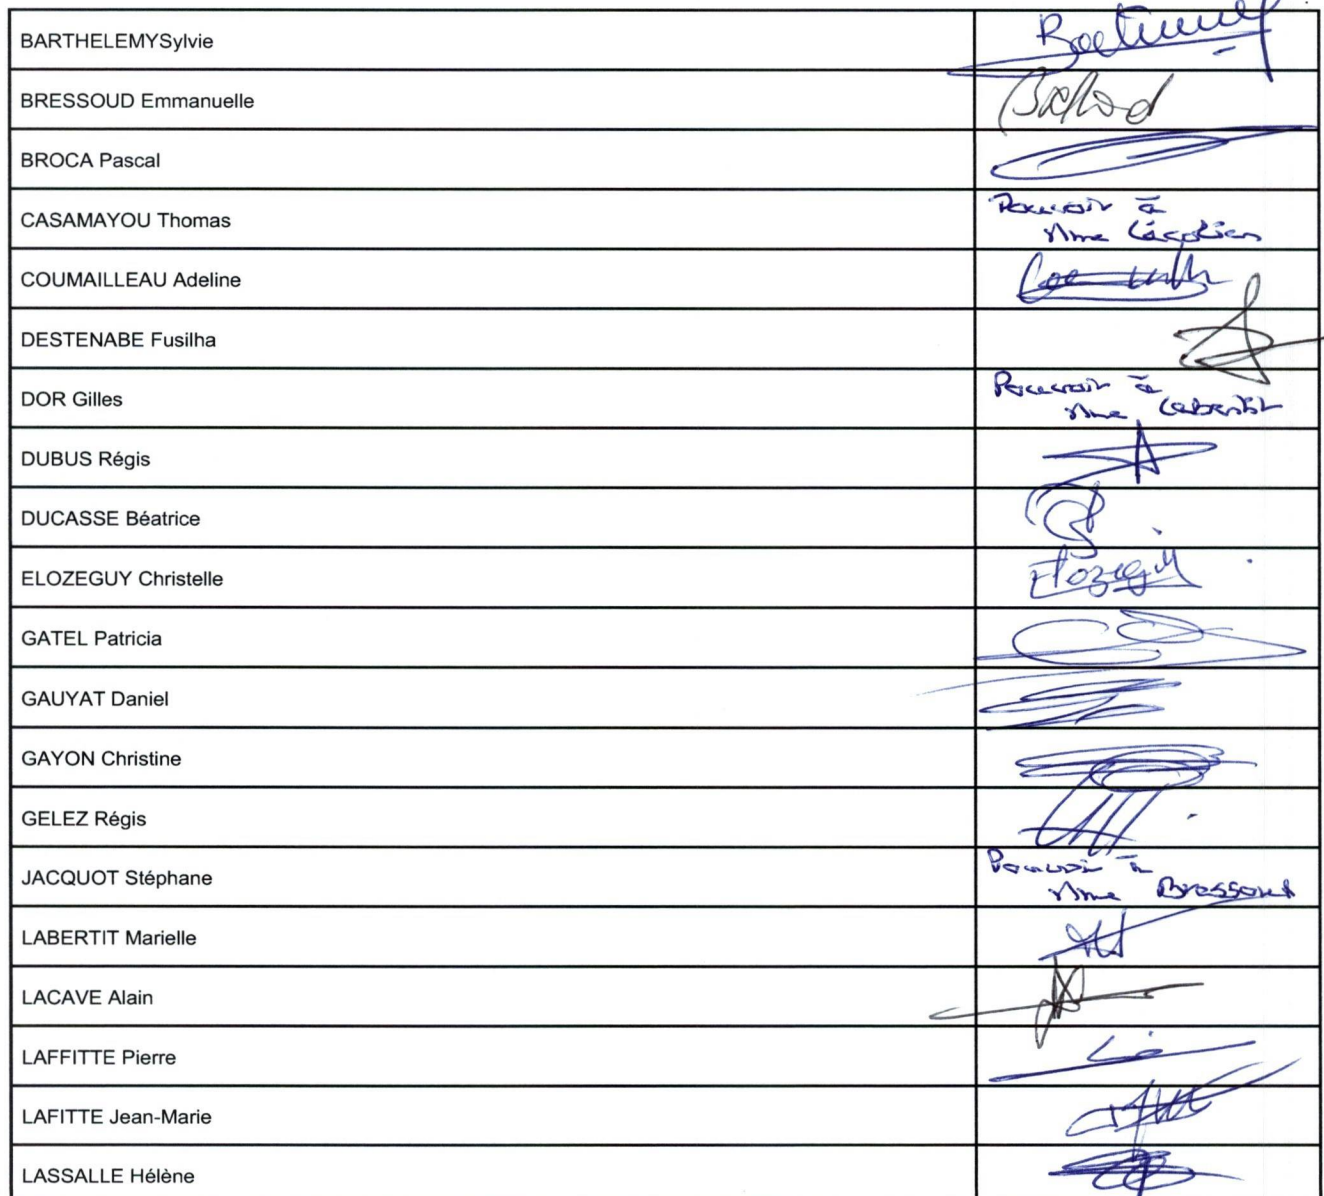 BARTHELEMYSylvie
BRESSOUD Emmanuelle
BROCA Pascal
CASAMAYOU Thomas
Pouvoir à
Mme
COUMAILLEAU Adeline
DESTENABE Fusilha
DOR Gilles
Pouvoir à
Mme Labertit
DUBUS Régis
DUCASSE Béatrice
ELOZEGUY Christelle
Elozeguy
GATEL Patricia
GAUYAT Daniel
GAYON Christine
GELEZ Régis
JACQUOT Stéphane
Pouvoir à
Mme Bressoud
LABERTIT Marielle
LACAVE Alain
LAFFITTE Pierre
LAFITTE Jean-Marie
LASSALLE Hélène